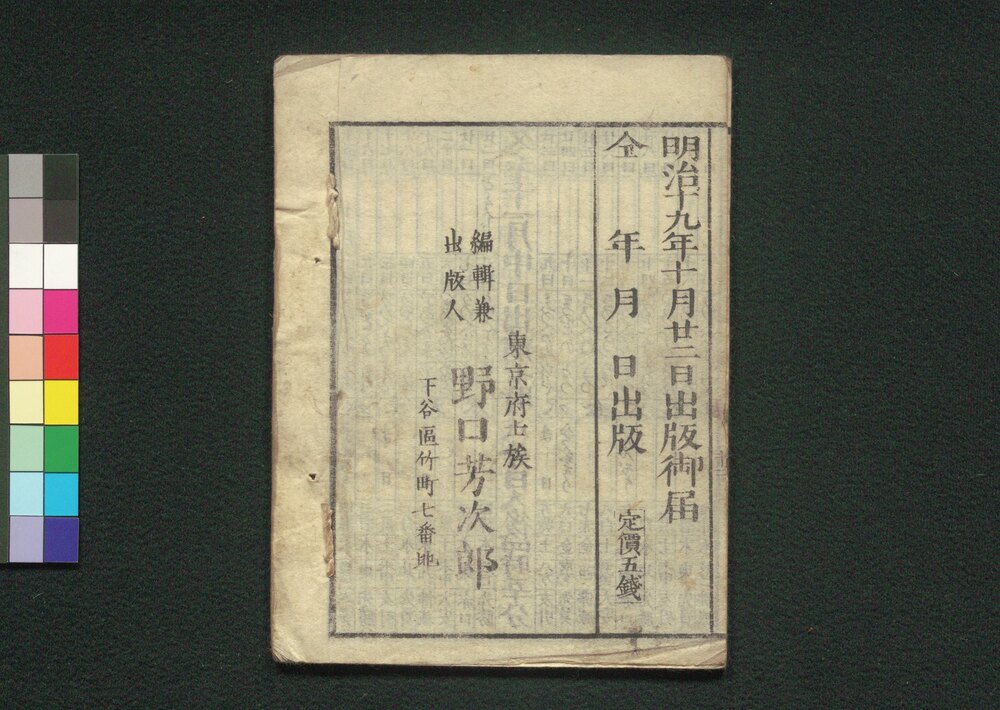 明治十九年十月廿二日出版御届
仝年月日出版
定價五錢
東京府士族
編輯兼
出版人
野口芳次郎
下谷區竹町七番地